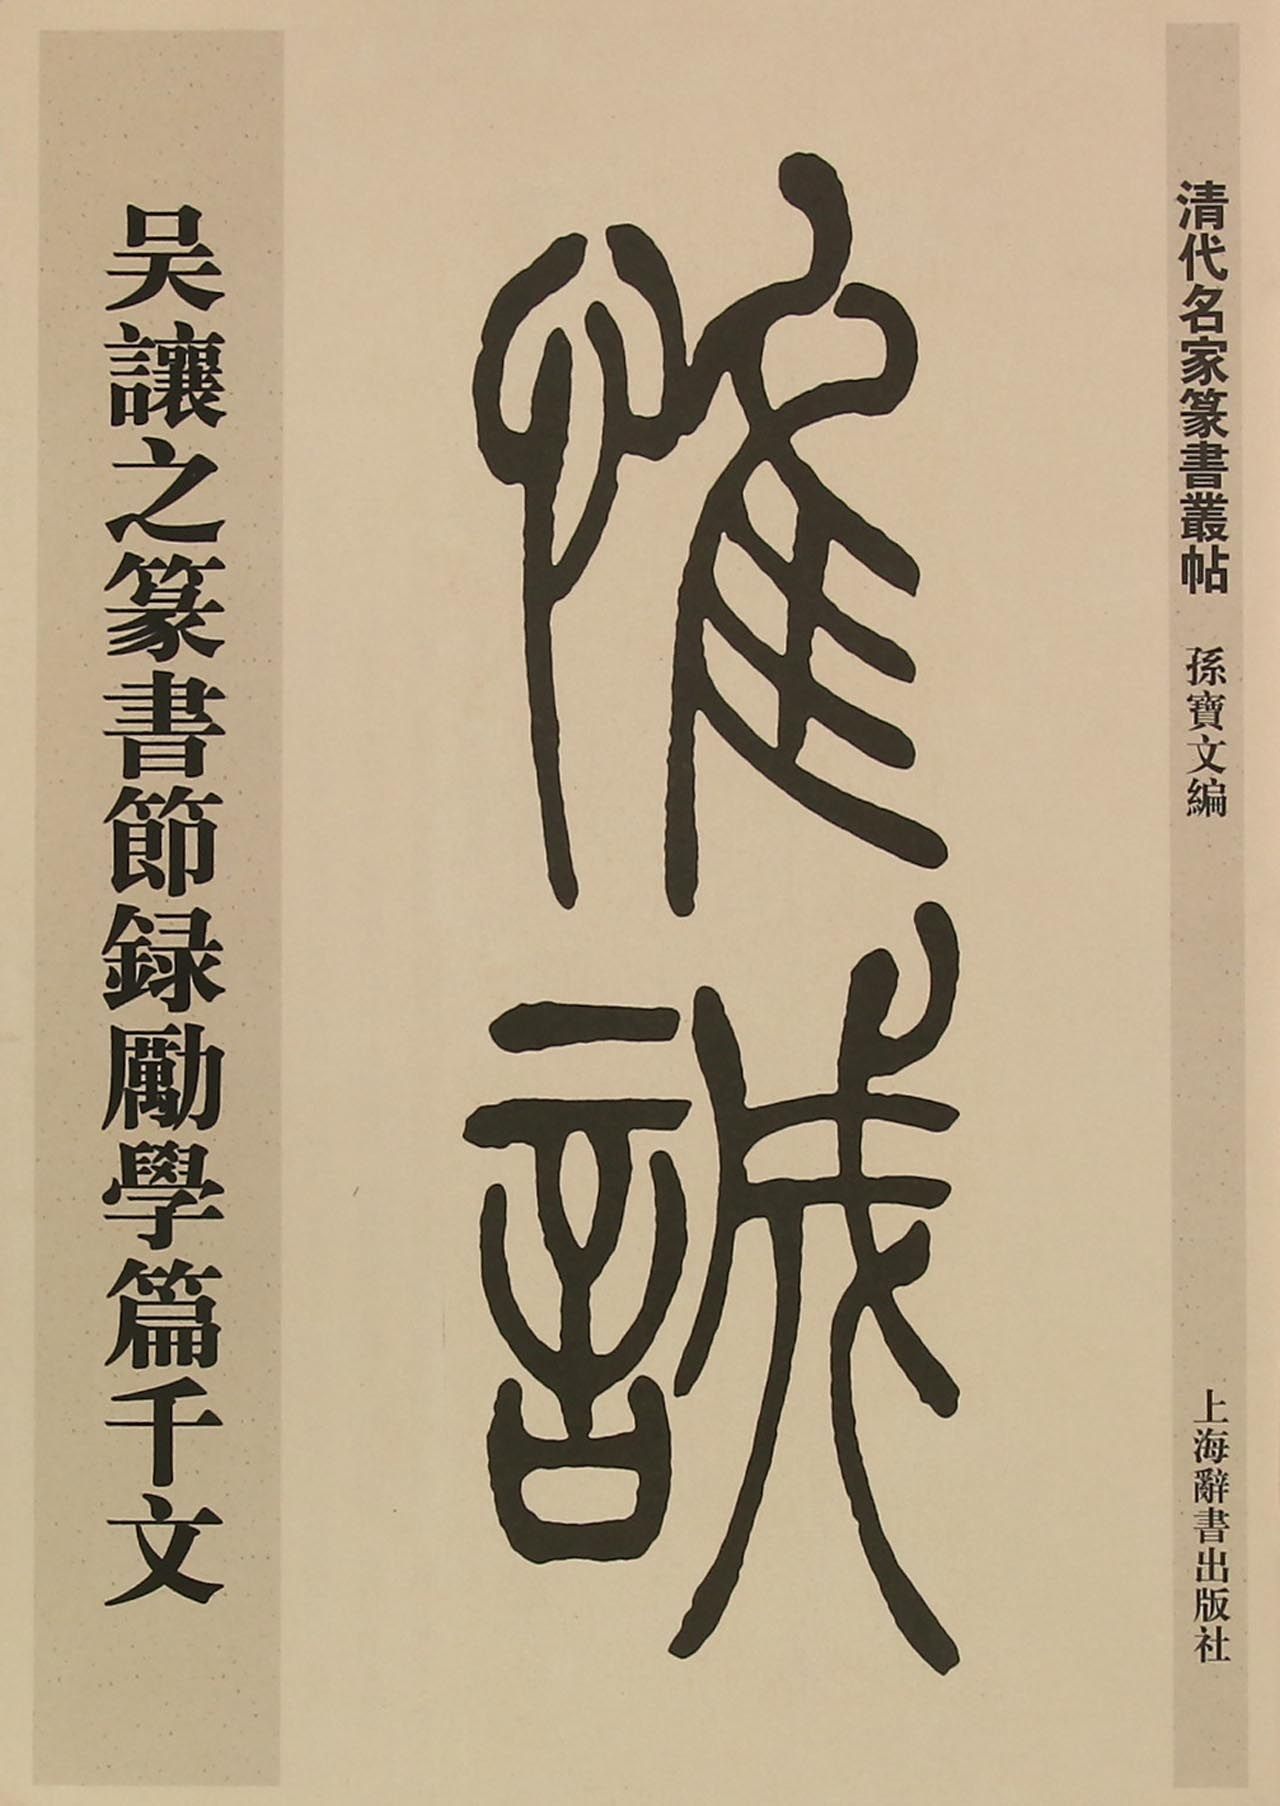 清代名家篆書叢帖 孫寶文編 上海辭書出版社
惟誠
吴讓之篆書節録勵學篇千文